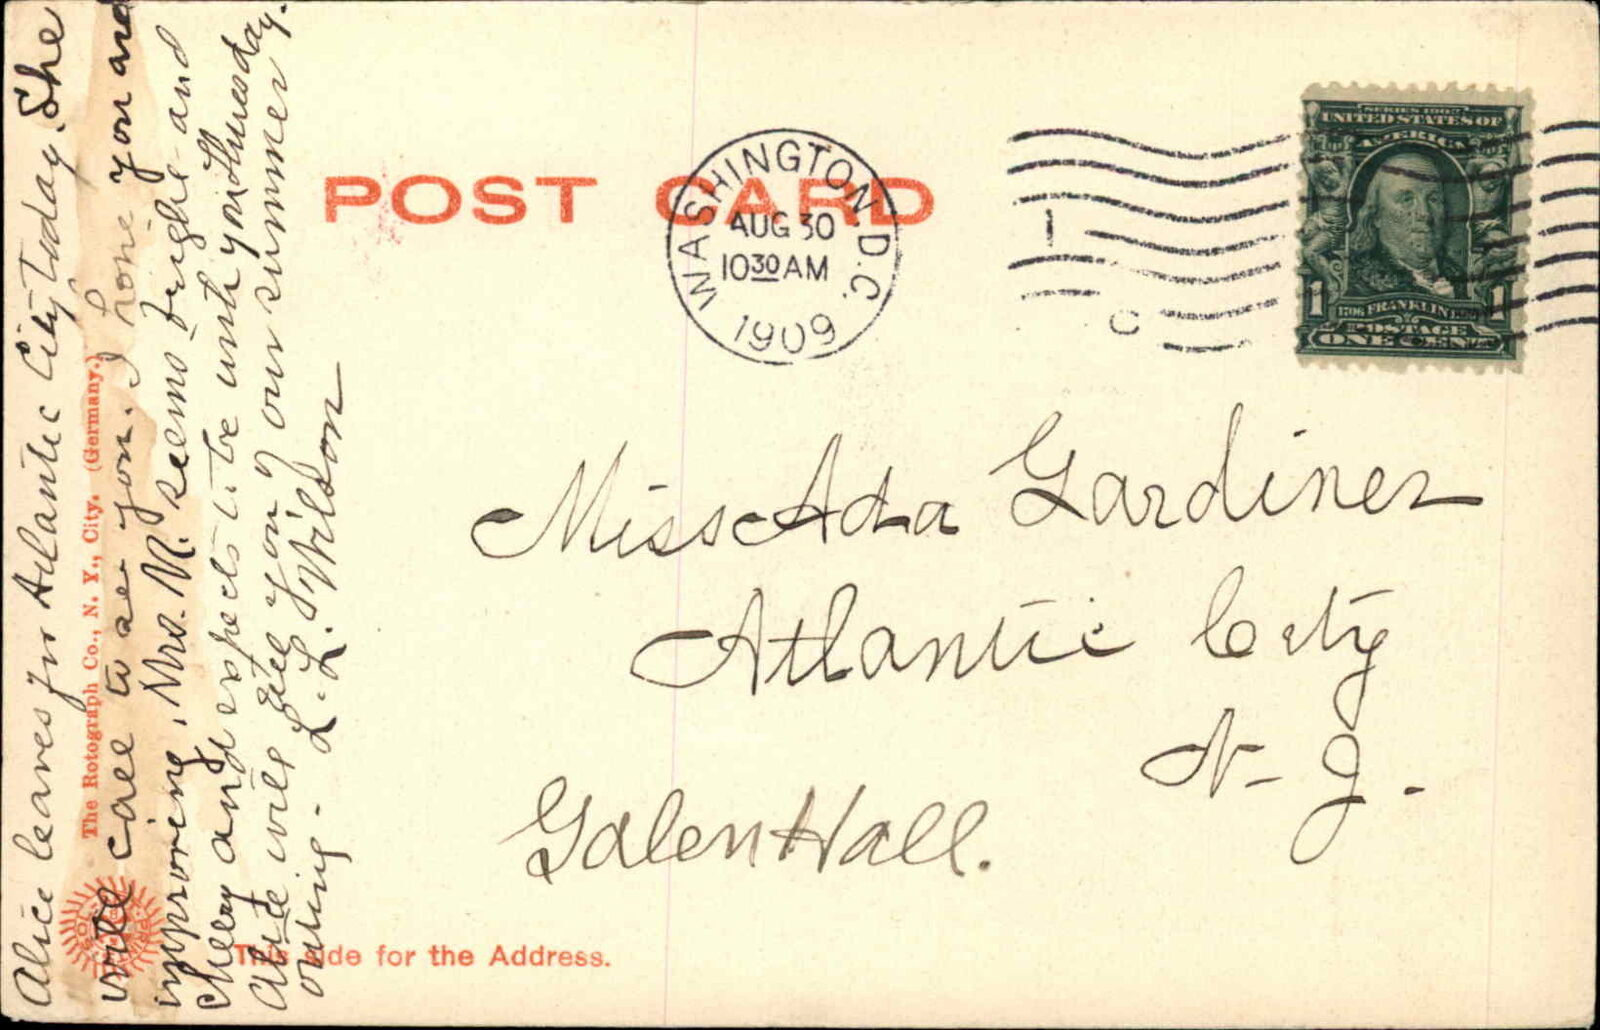 POST CARD
WASHINGTON, D.C.
AUG 30
10 30 AM
1909
1
C
SERIES 1902
UNITED STATES OF
AMERICA
1706 FRANKLIN 1790
POSTAGE
1 1
ONE CENT
Miss Ada Gardiner
Atlantic City
N. J.
Galen Hall.
This side for the Address.
The Rotograph Co., N. Y., City. (Germany.)
Alice leaves for Atlantic City today. She
will call to see you. I hope you are
improving, Mrs. M. seems bright and
cheery and expects to be with you Thursday.
Alice will tell you of our summer
outing - L. L. Wilson